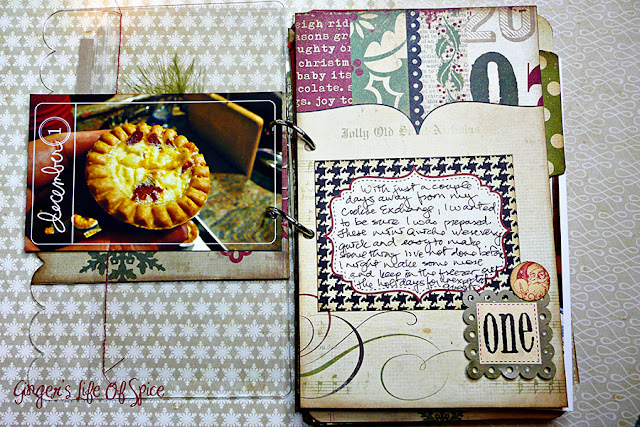 december 1
Ginger's Life Of Spice
eigh rid
asons gre
ughty or
christm
baby its
colate. s
gs. joy to
20
Jolly Old
With just a couple
days away from my
Cookie Exchange, I wanted
to be sure I was prepared.
These mini Quiche were very
quick and easy to make
something I've not done before
I might make some more
and keep in the freezer
the holidays for
one